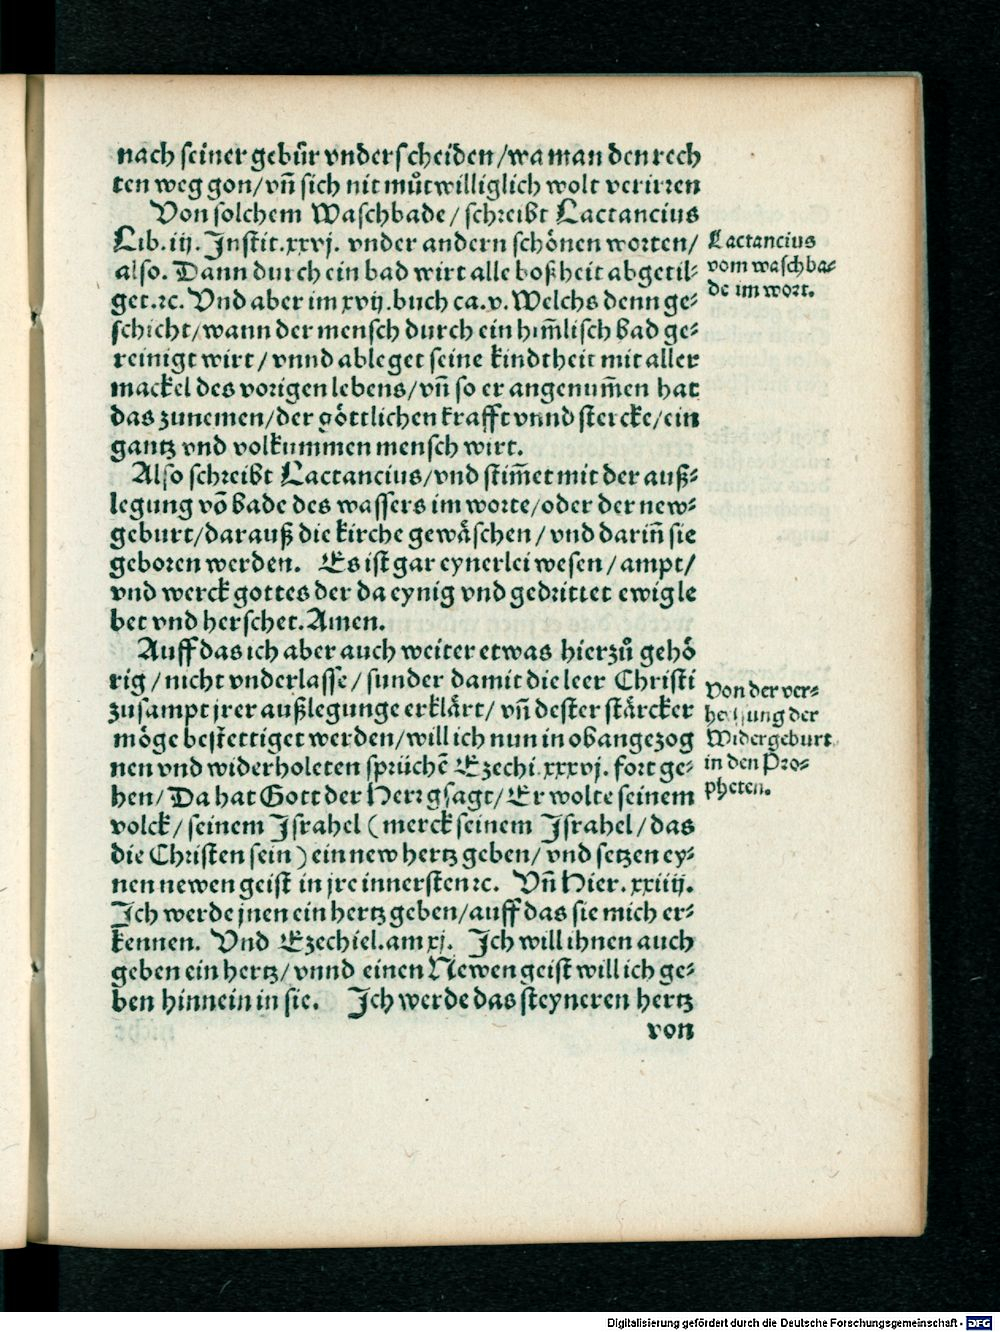 nach seiner gebůr vnderscheiden/wa man den rech
ten weg gon/vñ sich nit můtwilliglich wolt verirren
Von solchem Waschbade/schreibt Lactancius
Lib.iij.Instit.xxvj. vnder andern schönen worten/
also. Dann durch ein bad wirt alle boßheit abgetil⸗
get.ꝛc. Vnd aber im xvij.buch ca.v.Welchs denn ge⸗
schicht/wann der mensch durch ein him̃lisch bad ge⸗
reinigt wirt/vnnd ableget seine kindtheit mit aller
mackel des vorigen lebens/vñ so er angenum̃en hat
das zunemen/der göttlichen krafft vnnd stercke/ein
gantz vnd volkummen mensch wirt.
Lactancius
vom waschba⸗
de im wort.
Also schreibt Lactancius/vnd stim̃et mit der auß⸗
legung võ bade des wassers im worte/oder der new⸗
geburt/darauß die kirche gewäschen/vnd dariñ sie
geboren werden. Es ist gar eynerlei wesen/ampt/
vnd werck gottes der da eynig vnd gedrittet ewig le
bet vnd herschet.Amen.
Auff das ich aber auch weiter etwas hierzů gehö
rig/nicht vnderlasse/sunder damit die leer Christi
zusampt jrer außlegunge erklärt/vñ dester stärcker
möge bestettiget werden/will ich nun in obangezog
nen vnd widerholeten sprüchẽ Ezechi.xxxvj.fort ge⸗
hen/Da hat Gott der Herr gsagt/Er wolte seinem
volck/seinem Israhel (merck seinem Israhel/das
die Christen sein) ein new hertz geben/vnd setzen ey⸗
nen newen geist in jre innersten ꝛc. Vñ Hier.xxiiij.
Ich werde jnen ein hertz geben/auff das sie mich er⸗
kennen. Vnd Ezechiel.am xj. Ich will ihnen auch
geben ein hertz/vnnd einen Newen geist will ich ge⸗
ben hinnein in sie. Ich werde das steyneren hertz
von
Von der ver⸗
heissung der
Widergeburt
in den Pro⸗
pheten.
Digitalisierung gefördert durch die Deutsche Forschungsgemeinschaft - DFG